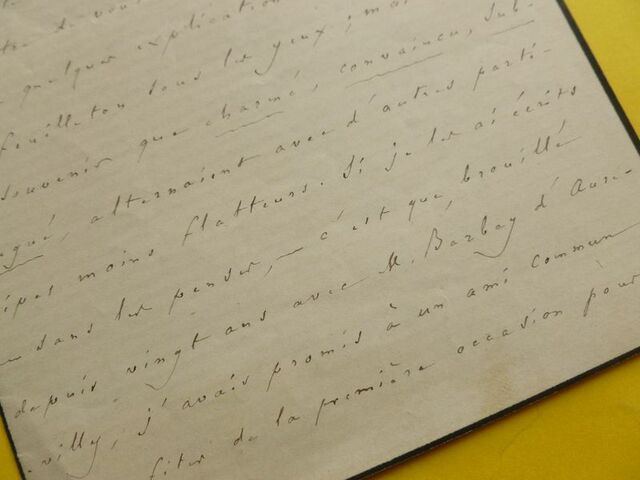 de vous
quelques explications
feuilleton sous les yeux ; mais
souvenir que charmé, convaincu, sub-
gué, alternaient avec d'autres parti-
cipes moins flatteurs. Si je les ai écrits
— sans les penser, — c'est que, brouillé
depuis vingt ans avec M. Barbey d'Aure-
villy, j'avais promis à un ami commun
fiter de la première occasion pour